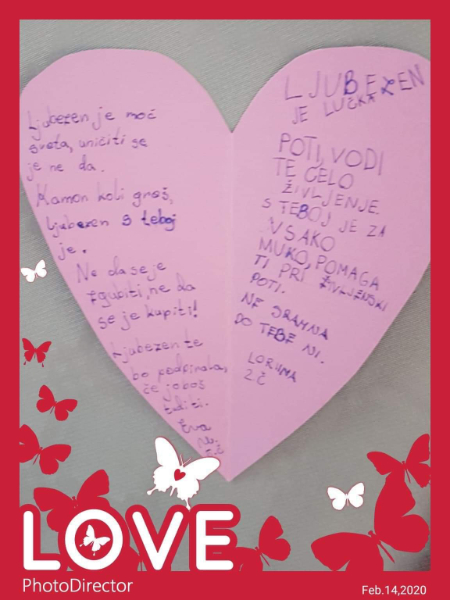 Ljubezen je moč
sveta, uničiti se
je ne da.
Kamon koli greš,
ljubezen s teboj
je.
Ne da se je
zgubiti, ne da
se je kupiti!
Ljubezen te
bo podpirala,
če jo boš
Eva
LJUBEZEN
JE LUČKA
POTI, VODI
TE CELO
ŽIVLJENJE.
S TEBOJ JE ZA
VSAKO
MUKO, POMAGA
TI PRI ŽIVLJENSKI
POTI.
NE SRAMNA
DO TEBE NI.
2.Č
LOVE
PhotoDirector
Feb.14,2020